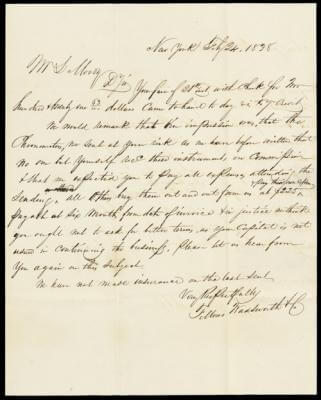 New York Feby 24. 1838
Mr S. Morey
D/Sir Your fav of 20th inst with Check for Two
hundred & twenty one dollars Came to hand to day & is to yr Credit
We would remark that the impression was, that the
Thermometers, we sent at your risk as we have before written that
no one but yourself has these instruments, on Commission
& that we expected you to pay all expenses, attending the
sending, all others buy them out and out from us at $225
pay at Six Months from date of invoice & in justice we think
you ought not to ask for better terms, as your Capital is not
used in Continuing the business, Please let us hear from
You again on this Subject.
We have not made insurance on the last sent
Very Respectfully
Fellows Wadsworth & Co